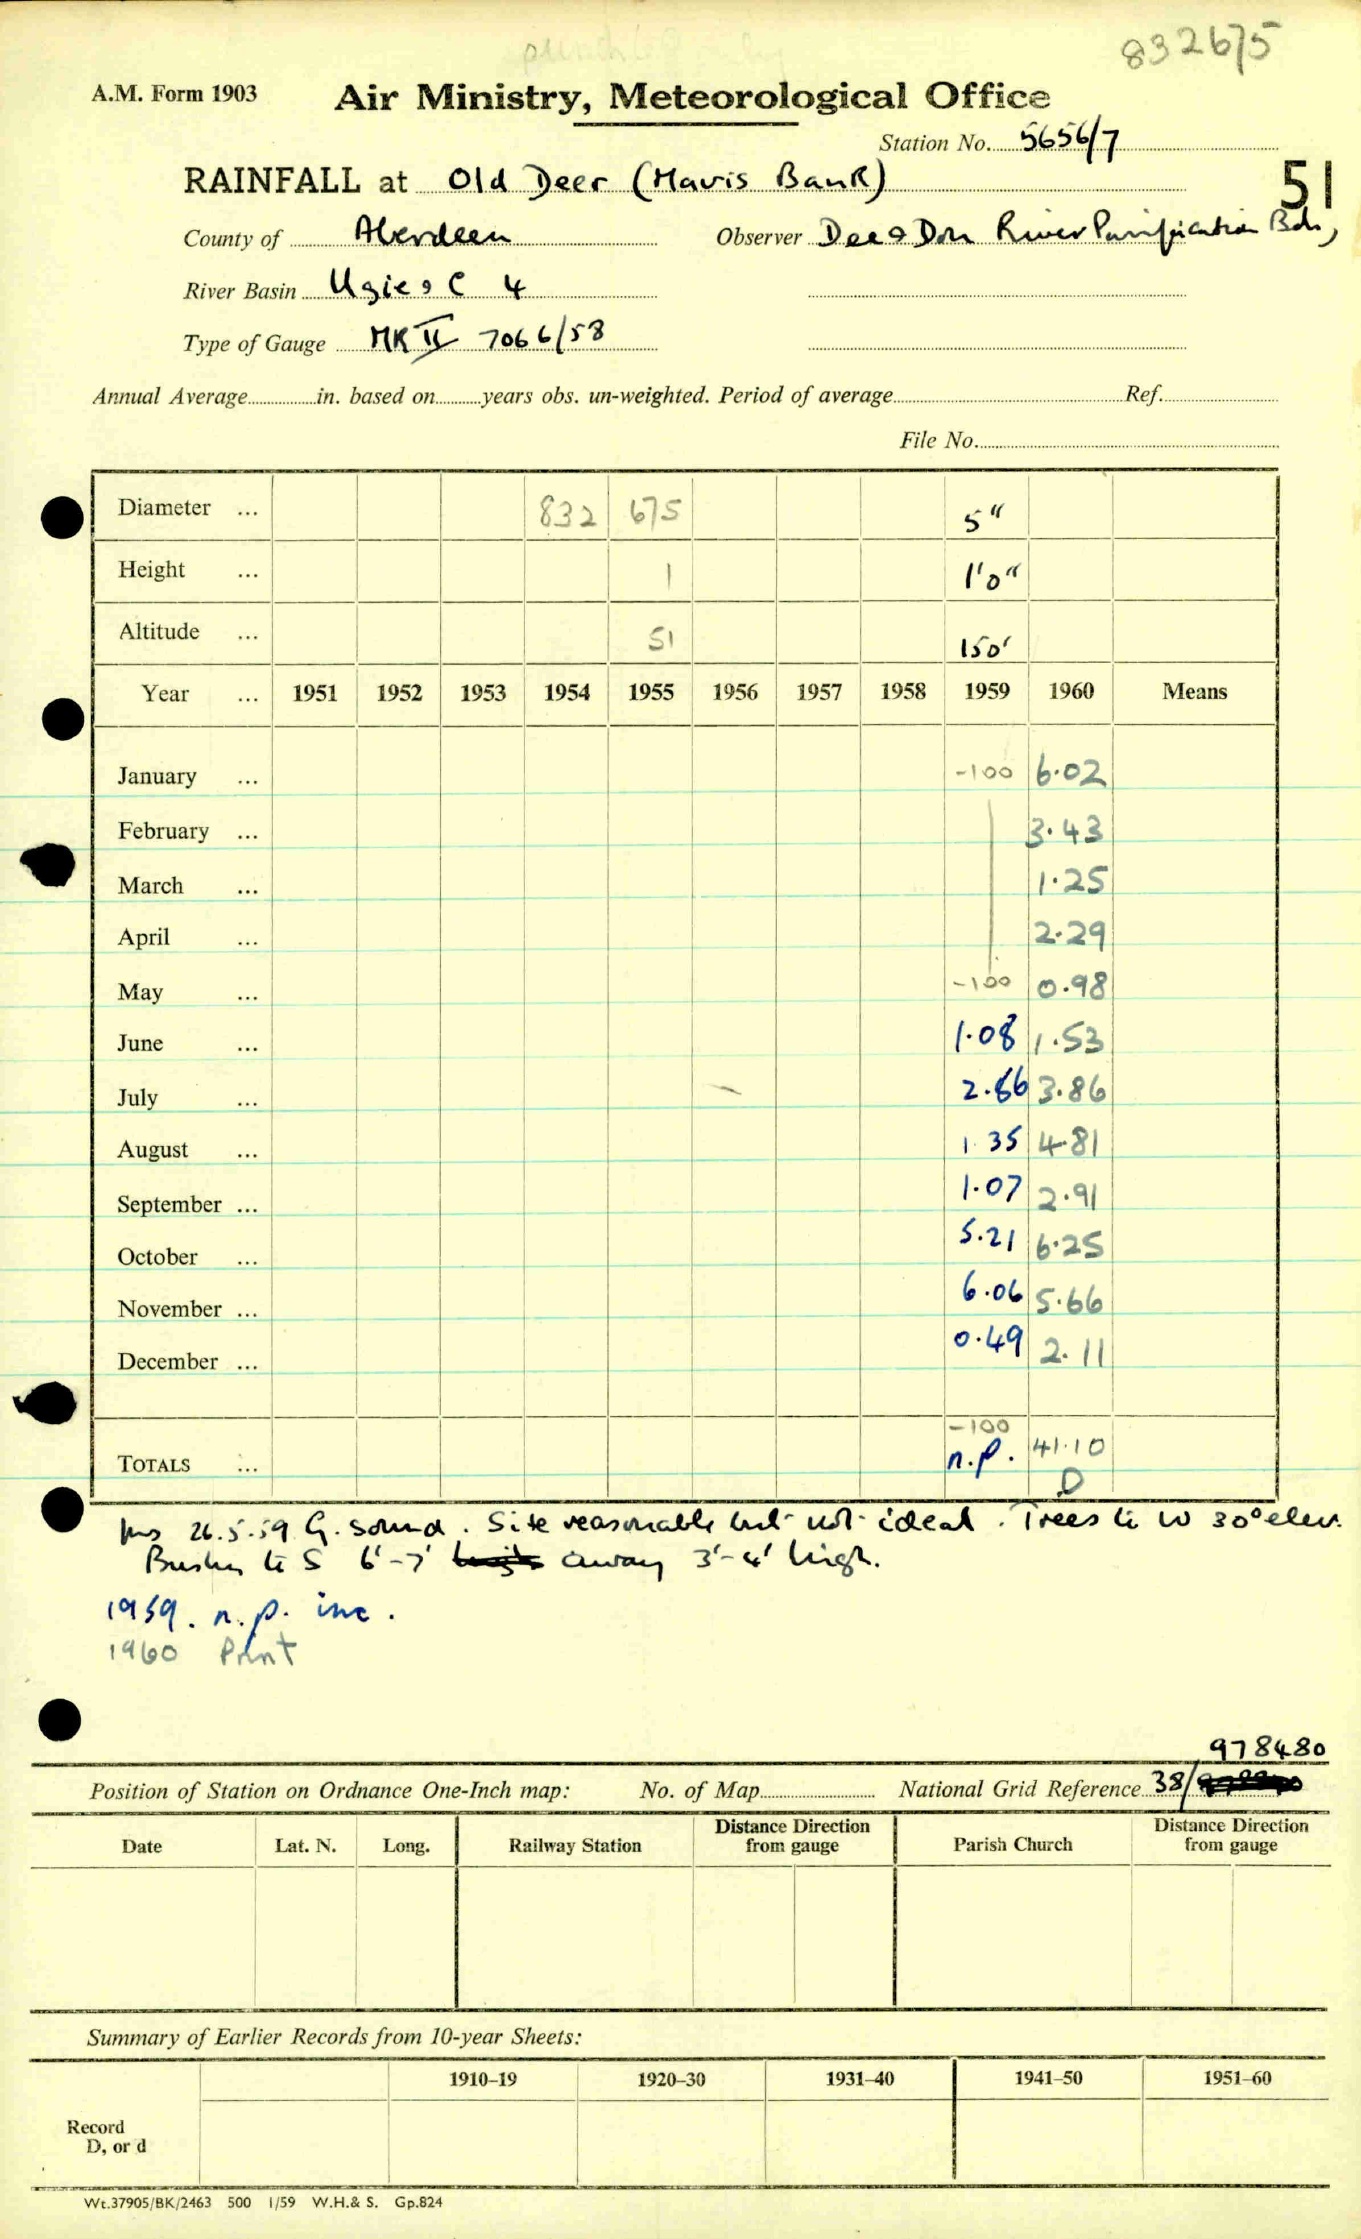 832675
A.M. Form 1903
Air Ministry, Meteorological Office
Station No. 5656/7
51
RAINFALL at Old Deer (Mavis Bank)
County of Aberdeen Observer Dee & Don River Purification Bds,
River Basin Ugie & C 4
Type of Gauge MK II 7066/58
Annual Average in. based on years obs. un-weighted. Period of average Ref.
File No.
Diameter ... 832 675 5"
Height ... 1 1'0"
Altitude ... 51 150'
Year ... 1951 1952 1953 1954 1955 1956 1957 1958 1959 1960 Means
January ... -100 6.02
February ... 3.43
March ... 1.25
April ... 2.29
May ... -100 0.98
June ... 1.08 1.53
July ... 2.86 3.86
August ... 1.35 4.81
September ... 1.07 2.91
October ... 5.21 6.25
November ... 6.06 5.66
December ... 0.49 2.11
-100
TOTALS ... n.p. 41.10
D
Ins 26.5.59 G. sound. Site reasonable but not ideal. Trees to W 30° elev.
Bushes to S 6'-7' away 3'-4' high.
1959. n.p. inc.
1960 Print
978480
Position of Station on Ordnance One-Inch map: No. of Map National Grid Reference 38/
Date Lat. N. Long. Railway Station Distance Direction from gauge Parish Church Distance Direction from gauge
Summary of Earlier Records from 10-year Sheets:
1910–19 1920–30 1931–40 1941–50 1951–60
Record
D, or d
Wt.37905/BK/2463 500 1/59 W.H.& S. Gp.824